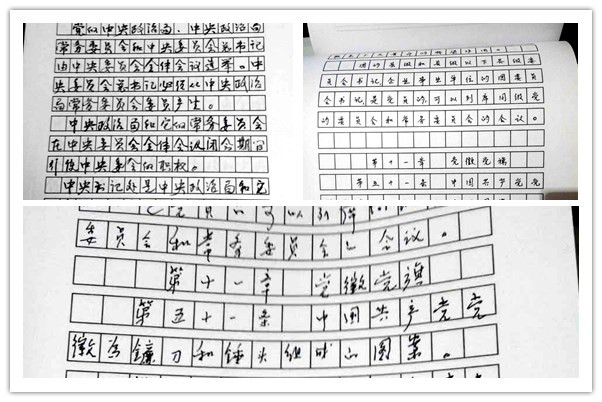 党的中央政治局、中央政治局
常务委员会和中央委员会总书记
由中央委员会全体会议选举。中
央委员会总书记必须从中央政治
局常务委员会委员产生。
中央政治局和它的常务委员会
在中央委员会全体会议闭会期间
行使中央委员会的职权。
中央书记处是中央政治局和它
团的县级和县级以下各级委
员会书记,企业事业单位的团委员
会书记,是党员的,可以列席同级党
的委员会和常务委员会的会议。
第十一章 党徽党旗
第五十一条 中国共产党党
委员会和常务委员会的会议。
第十一章 党徽党旗
第五十一条 中国共产党党
徽为镰刀和锤头组成的图案。